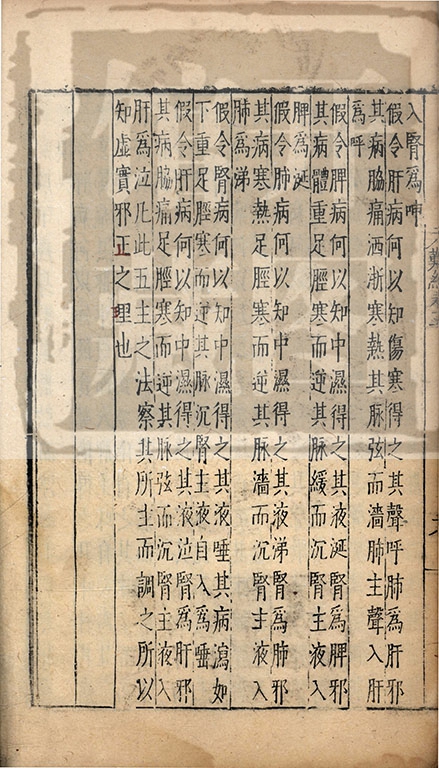 入腎爲呻
假令肝病何以知傷寒得之其聲呼肺爲肝邪
其病脇痛洒淅寒熱其脉弦而濇肺主聲入肝
爲呼
假令脾病何以知中濕得之其液涎腎爲脾邪
其病體重足脛寒而逆其脉緩而沉腎主液入
脾爲涎
假令肺病何以知中濕得之其液涕腎爲肺邪
其病寒熱足脛寒而逆其脉濇而沉腎主液入
肺爲涕
假令腎病何以知中濕得之其液唾其病瀉如
下重足脛寒而逆其脉沉腎主液自入爲唾
假令肝病何以知中濕得之其液泣腎爲肝邪
其病脇痛足脛寒而逆其脉弦而沉腎主液入
肝爲泣凡此五主之法察其所主而調之所以
知虛實邪正之理也